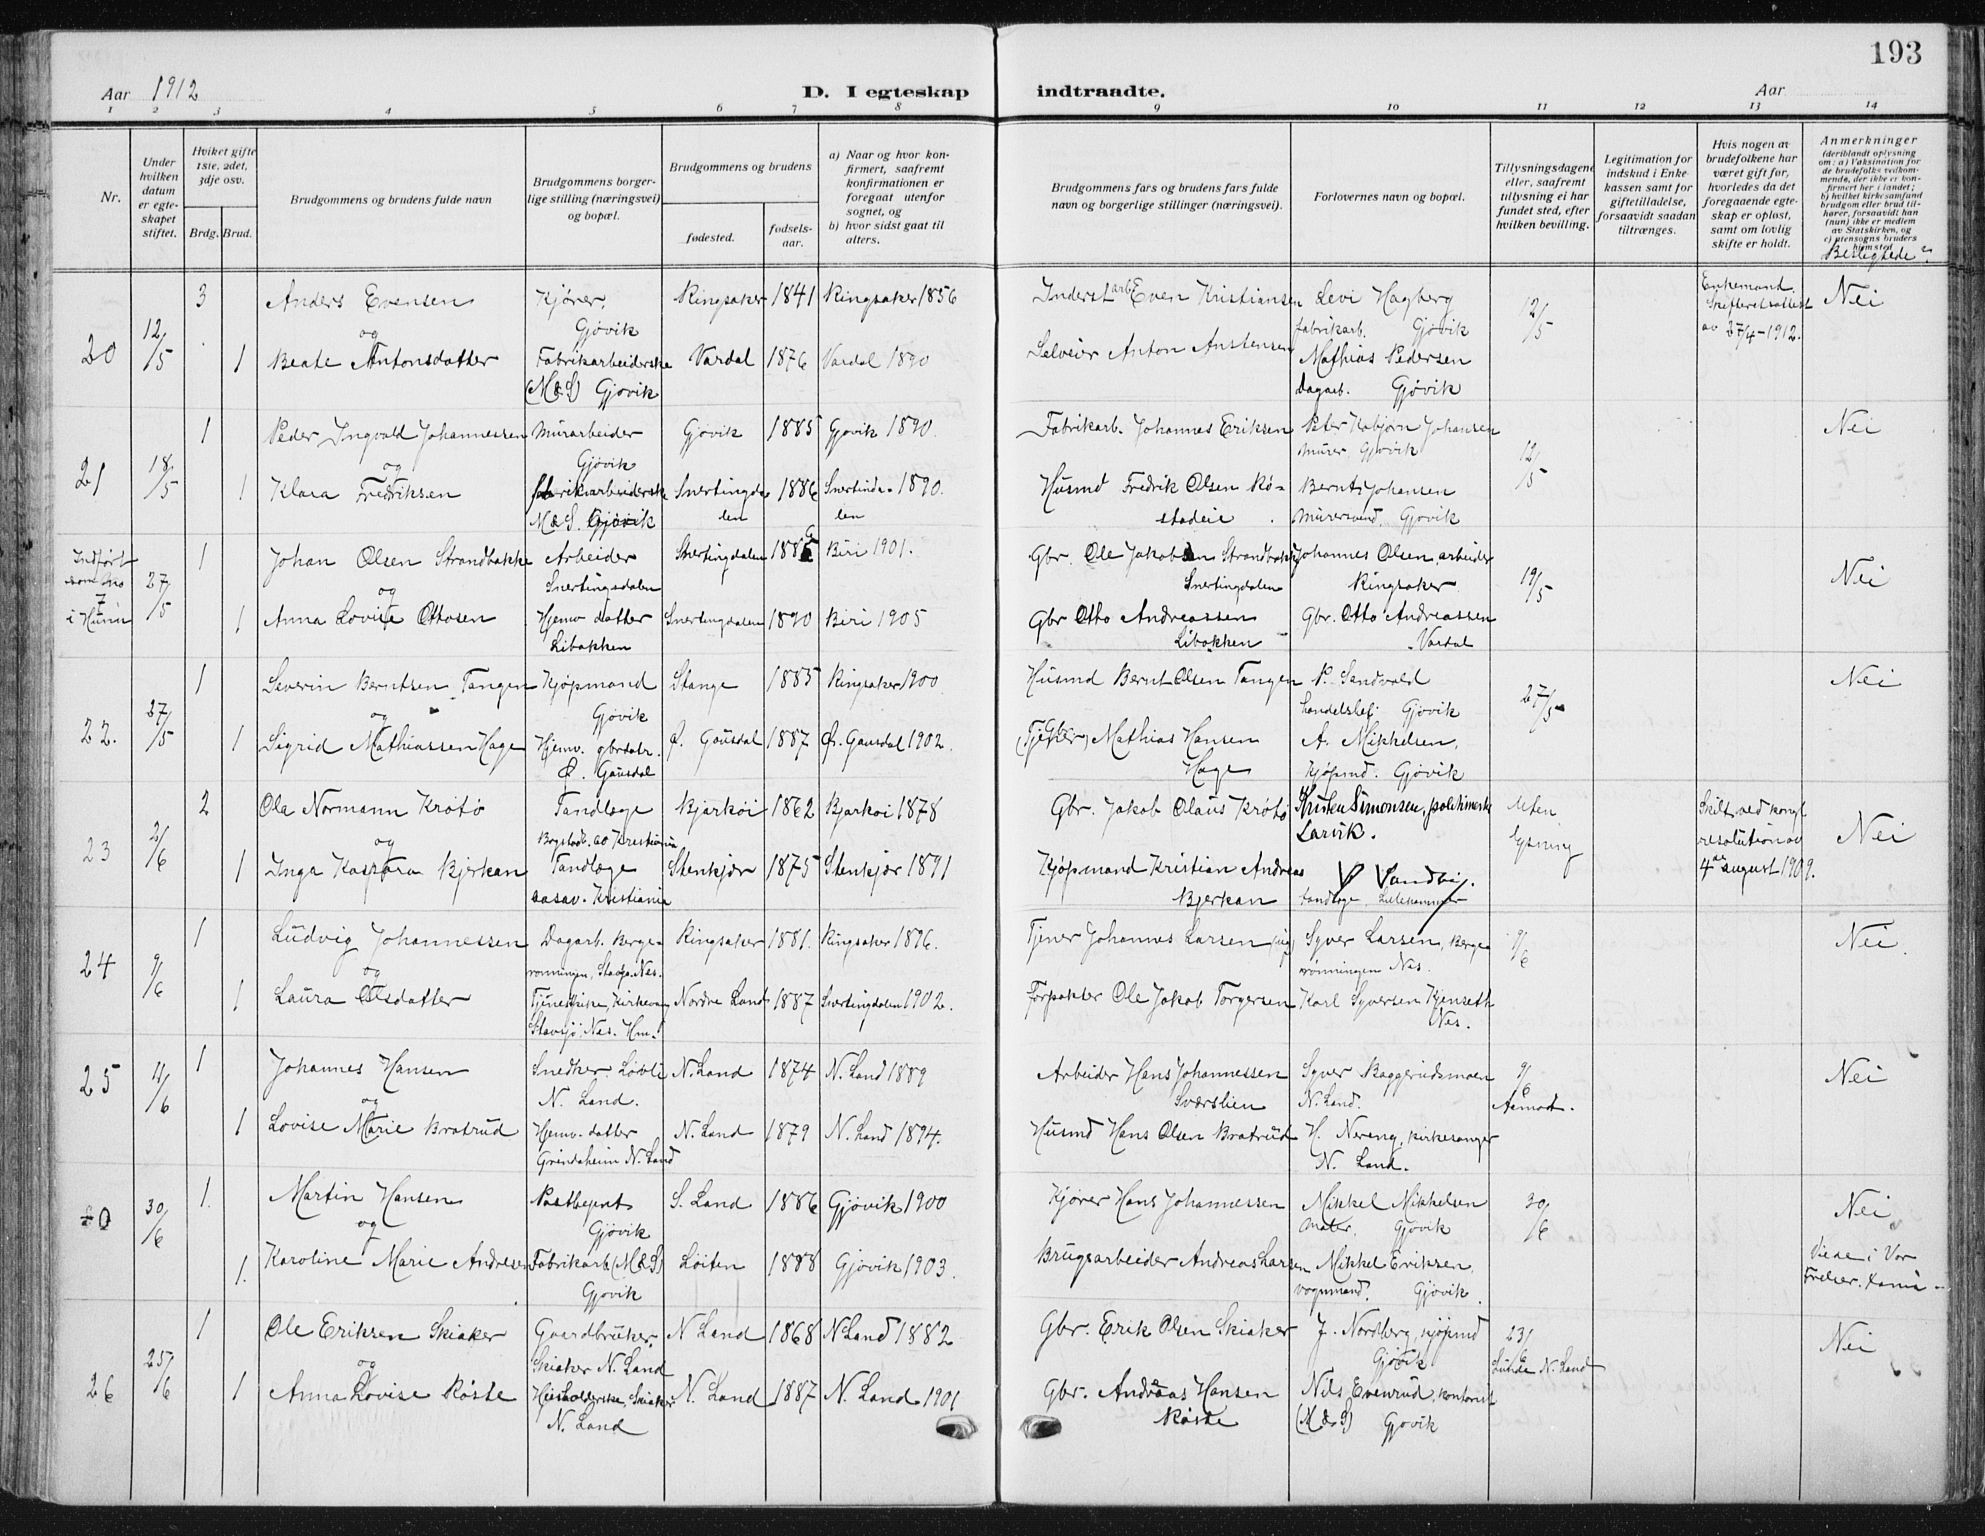 193
Aar 1912
D. I egteskap indtraadte.
Aar
1 2 3 4 5 6 7 8 9 10 11 12 13 14
Nr.
Under hvilken datum er egteskapet stiftet.
Hviket gifte 1ste, 2det, 3dje osv.
Brdg. Brud.
Brudgommens og brudens fulde navn
Brudgommens borgerlige stilling (næringsvei) og bopæl.
Brudgommens og brudens
fødested.
fødselsaar.
a) Naar og hvor konfirmert, saafremt konfirmationen er foregaat utenfor sognet, og
b) hvor sidst gaat til alters.
Brudgommens fars og brudens fars fulde navn og borgerlige stillinger (næringsvei).
Forlovernes navn og bopæl.
Tillysningsdagene eller, saafremt tillysning ei har fundet sted, efter hvilken bevilling.
Legitimation for indskud i Enkekassen samt for giftetilladelse, forsaavidt saadan tiltrænges.
Hvis nogen av brudefolkene har været gift før, hvorledes da det foregaaende egteskap er opløst, samt om lovlig skifte er holdt.
Anmerkninger
(deriblandt oplysning om: a) Vaksination for de brudefolks vedkommende, der ikke er konfirmert her i landet; b) hvilket kirkesamfund brudgom eller brud tilhører, forsaavidt han (hun) ikke er medlem av Statskirken, og c) utensogns bruders hjemsted
Beslegtede?
20 12/5 3 Anders Evensen Kjører, Gjøvik Ringsaker 1841 Ringsaker 1856 Inderst arb. Even Kristiansen Levi Hagberg fabrikarb. Gjøvik 12/5 Enkemand. Skifteretsattest av 27/4-1912. Nei
og
1 Beate Antonsdatter Fabrikarbeiderske (M&S) Gjøvik Vardal 1876 Vardal 1890 Selveier Anton Anstensen Mathias Pedersen Dagarb. Gjøvik
21 18/5 1 Peder Ingvald Johannessen Murarbeider Gjøvik Gjøvik 1885 Gjøvik 1890. Fabrikarb. Johannes Eriksen Peter Johansen Murer Gjøvik 12/5 Nei
og
1 Klara Fredriksen fabrikarbeiderske M&S. Gjøvik Snertingdalen 1886 Snertindalen 1890. Husmd Fredrik Olsen Røstadeie Bernt Johansen Murersvend Gjøvik
Indført som No 7 i Hunn 27/5 1 Johan Olsen Strandbakke Arbeider Snertingsdalen Snertingdalen 1886 Biri 1901. Gbr. Ole Jakobsen Strandbakke Snertingdalen Johannes Olsen, arbeider Ringsaker 19/5 Nei
og
1 Anna Lovise Ottosen Hjemv datter Libakken Snertingdalen 1890 Biri 1905 Gbr Otto Andreassen Libakken Gbr. Otto Andreassen Vardal
22. 27/5 1 Severin Berntsen Tangen Kjøpmand Gjøvik Stange 1885 Ringsaker 1900 Husmd Bernt Olsen Tangen P. Sandvold handelsbej. Gjøvik 27/5 Nei
og
1 Sigrid Mathiassen Hage Hjemv. gbrdatr. Ø. Gausdal Ø. Gausdal 1887 Ø. Gausdal 1902. Mathias Hansen Hage A. Mikkelsen, Kjøpmd. Gjøvik
23 2/6 2 Ole Normann Krøtø Tandlæge Bogstadv. 60 Kristiania Bjarkøi 1862 Bjarkøi 1878 Gbr. Jakob Olaus Krøtø Kristen Simonsen, politimester Larvik. Uten lysning Skilt ved kongl resolution av 4de august 1909. Nei
og
1 Inga Kaspara Bjerkan Tandlæge Kristiania Stenkjær 1875 Stenkjær 1891 Kjøpmand Kristian Andreas Bjerkan V Sandvig. tandlæge Lillehammer
24 9/6 1 Ludvig Johannessen Dagarb. Bergerønningen, Stavsjø. Nes. Ringsaker 1881. Ringsaker 1896. Tjener Johannes Larsen (ug) Syver Larsen, Bergerønningen Nes. 9/6 Nei.
og
1 Laura Olsdatter Tjenestpike, Kirkevang Stavsjø, Nes. Hm. Nordre Land 1887 Snertingdalen 1902. Forpakter Ole Jakob Torgersen Karl Syversen Kjenseth Nes.
25 4/6 1 Johannes Hansen Snedker Løvli N. Land. N. Land 1874 N. Land 1889 Arbeider Hans Johannessen Sværslien Syver Baggerudsmoen N. Land. 9/6 Aasmort. Nei
og
1 Lovise Marie Bratrud Hjemv. datter Grindaheim N. Land N. Land 1879 N. Land 1894. Husmd Hans Olsen Bratrud H. Nereng, kirkesanger N. Land.
30/6 1. Martin Hansen Postbejent Gjøvik S. Land 1886 Gjøvik 1900 Kjører Hans Johannessen Mikkel Mikkelsen Maler. Gjøvik 30/6 Nei
og
1. Karoline Marie Andresen Fabrikarb. (M&S) Gjøvik Løiten 1888 Gjøvik 1903. Brugsarbeider Andreas Larsen Mikkel Eriksen vognmand. Gjøvik Viede i Vor Frelser.
26 25/6 1 Ole Eriksen Skiaker Gaardbruker Skiaker N. Land N Land 1868 N Land 1882 Gbr. Erik Olsen Skiaker J. Nordberg, kjøpmd Gjøvik 23/6 Lunde N. Land Nei
og
1 Anna Lovise Røste Husholderske, Skiaker N. Land N. Land 1887 N. Land 1901 Gbr. Andreas Hansen Røste Nils Evenrud, kontorist (M&S) Gjøvik